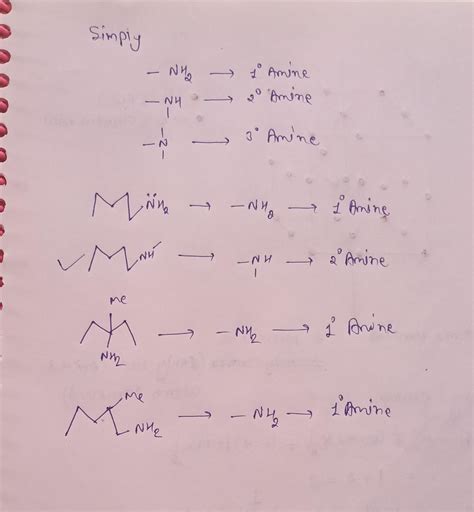 Simply
— NH2 → 1° Amine
— NH → 2° Amine
— N → 3° Amine
N̈H2 → — NH2 → 1° Amine
✓ NH → — NH → 2° Amine
Me
NH2 → — NH2 → 1° Amine
Me
NH2 → — NH2 → 1° Amine